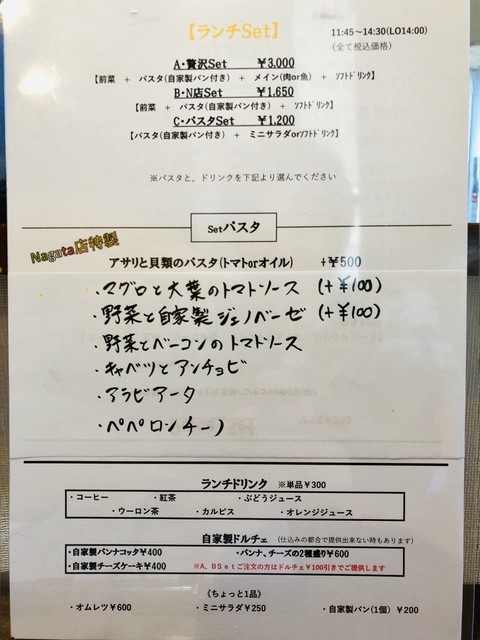 【ランチSet】
11:45～14:30(LO14:00)
(全て税込価格)
A・贅沢Set ￥3,000
【前菜 + パスタ(自家製パン付き) + メイン(肉or魚) + ソフトドリンク】
B・N店Set ￥1,650
【前菜 + パスタ(自家製パン付き) + ソフトドリンク】
C・パスタSet ￥1,200
【パスタ(自家製パン付き) + ミニサラダorソフトドリンク】
※パスタと、ドリンクを下記より選んでください
Setパスタ
Nagata店特製
アサリと貝類のパスタ(トマトorオイル) +￥500
・マグロと大葉のトマトソース (+￥100)
・野菜と自家製ジェノベーゼ (+￥100)
・野菜とベーコンのトマトソース
・キャベツとアンチョビ
・アラビアータ
・ペペロンチーノ
ランチドリンク ※単品￥300
・コーヒー ・紅茶 ・ぶどうジュース
・ウーロン茶 ・カルピス ・オレンジジュース
自家製ドルチェ (仕込みの都合で提供出来ない時もあります)
・自家製パンナコッタ￥400 ・パンナ、チーズの2種盛り￥600
・自家製チーズケーキ￥400 ※A、BSetご注文の方はドルチェ￥100引きでご提供します
《ちょっと1品》
・オムレツ￥600 ・ミニサラダ￥250 ・自家製パン(1個) ￥200